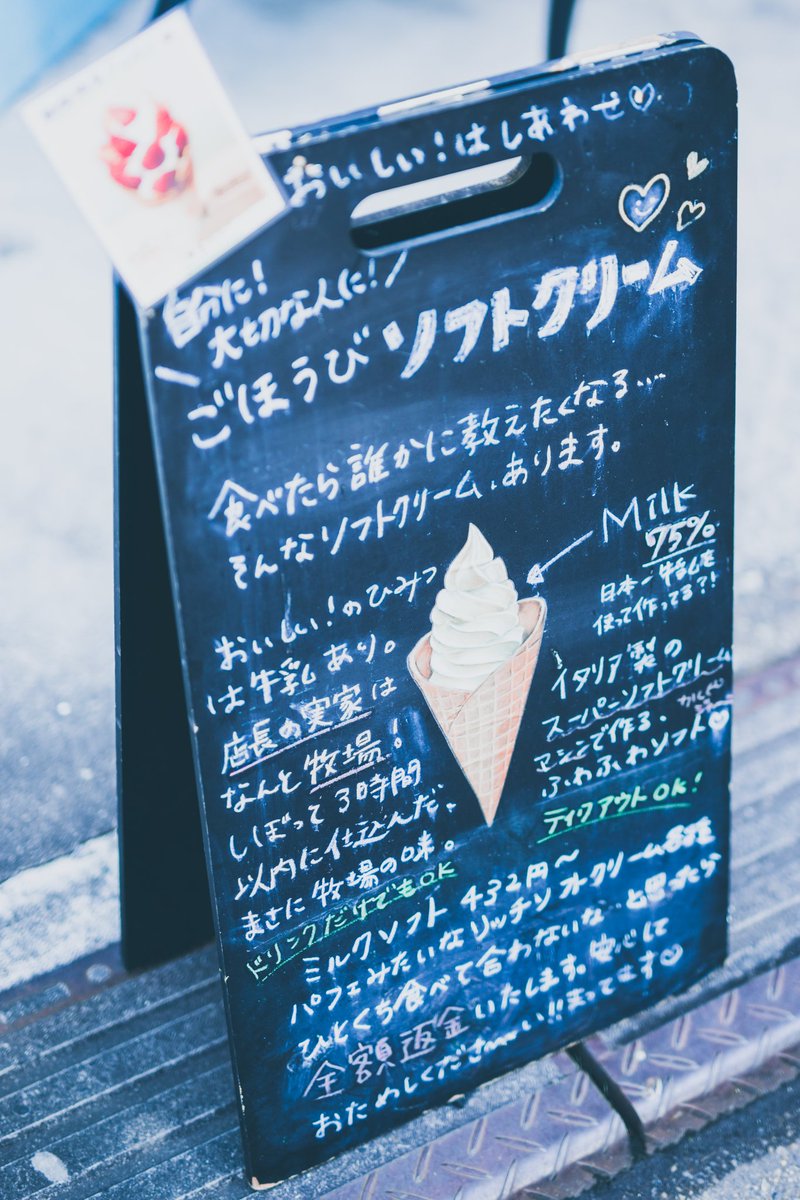 おいしい!はしあわせ♡
自分に!
大切な人に!
ごほうびソフトクリーム
食べたら誰かに教えたくなる…
そんなソフトクリーム、あります。
Milk
75%
日本一牛乳を
使って作ってる?!
おいしい!のひみつ
は牛乳あり。
店長の実家は
なんと牧場!
しぼって3時間
以内に仕込んだ、
まさに牧場の味。
ドリンクだけでもOK
イタリア製の
スーパーソフトクリーム
マシンで作る、
ふわふわソフト♡
テイクアウトOK!
ミルクソフト 432円〜
パフェみたいなリッチソフトクリーム各種
ひとくち食べて合わないな…と思ったら
全額返金いたします。安心して
おためしくださ〜い!!まってます